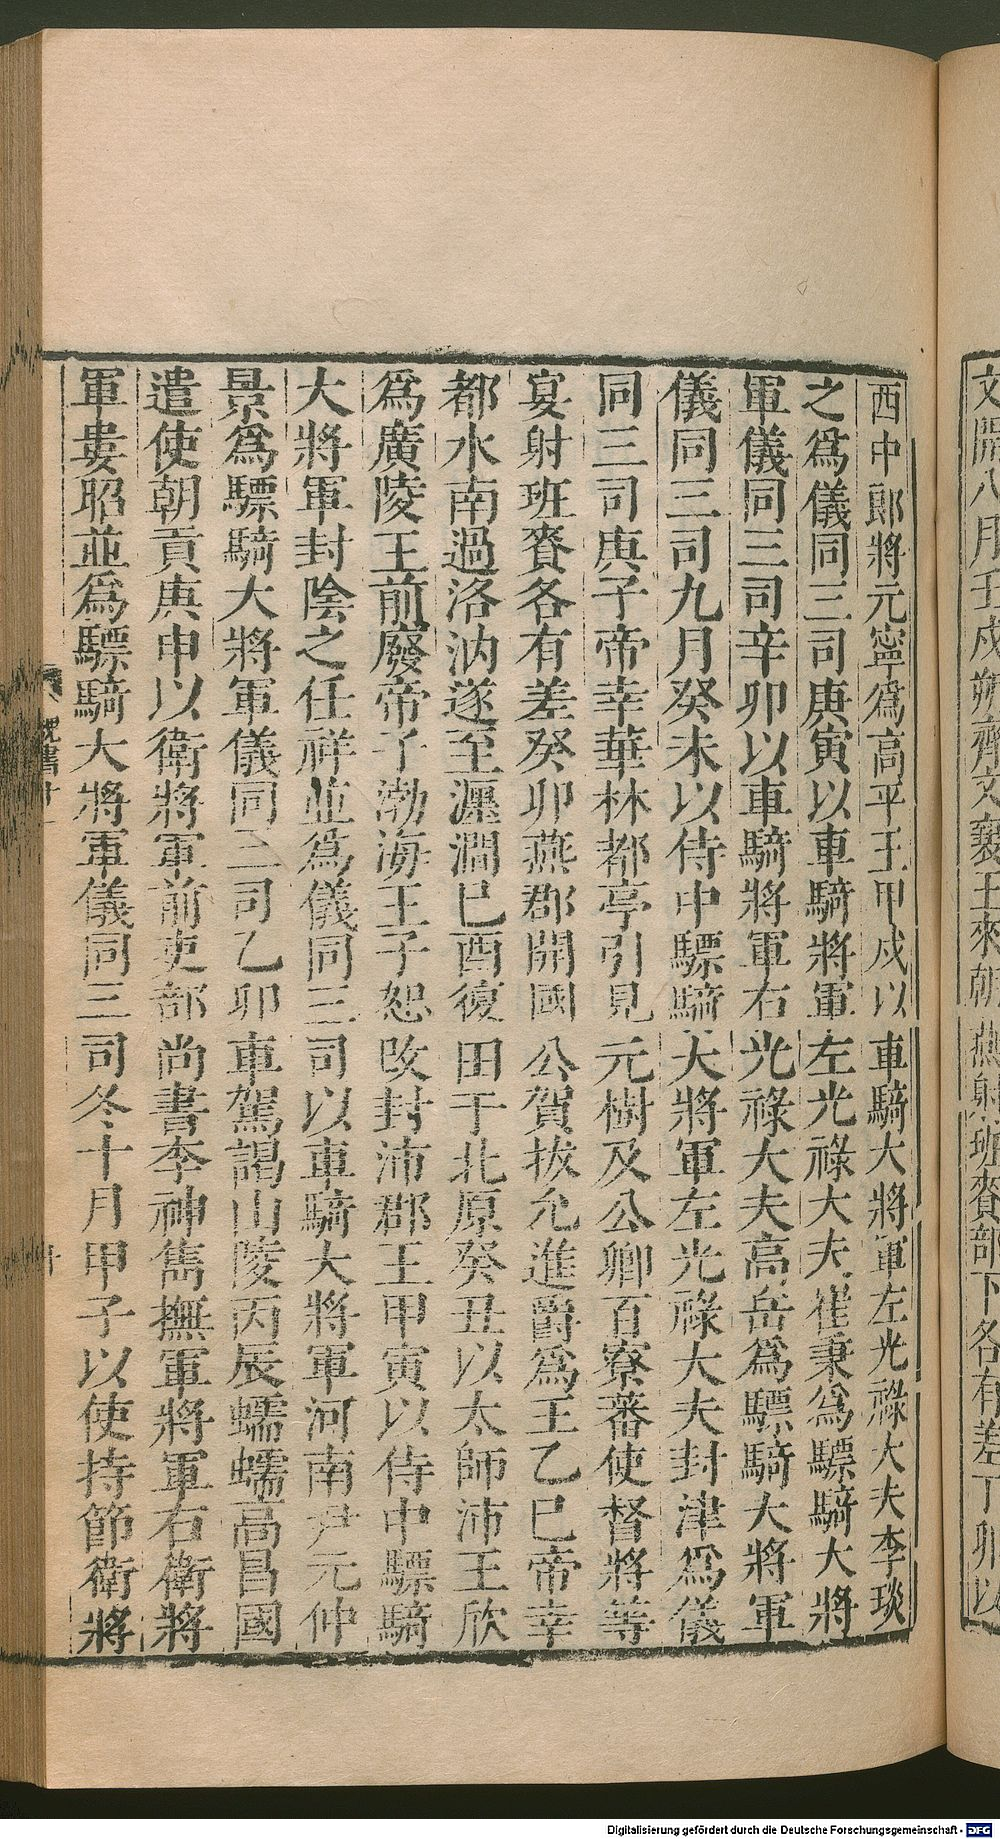 文開八月壬戌朔齊文襄王來朝燕射班賚部下各有差丁卯以
西中郎將元寧爲高平王甲戌以車騎大將軍左光祿大夫李琰
之爲儀同三司庚寅以車騎將軍左光祿大夫崔秉爲驃騎大將
軍儀同三司辛卯以車騎將軍右光祿大夫高岳爲驃騎大將軍
儀同三司九月癸未以侍中驃騎大將軍左光祿大夫封津爲儀
同三司庚子帝幸華林都亭引見元樹及公卿百寮蕃使督將等
宴射班賚各有差癸卯燕郡開國公賀拔允進爵爲王乙巳帝幸
都水南過洛汭遂至瀍澗巳酉復田于北原癸丑以太師沛王欣
爲廣陵王前廢帝子渤海王子恕改封沛郡王甲寅以侍中驃騎
大將軍封隆之任祥並爲儀同三司以車騎大將軍河南尹元仲
景爲驃騎大將軍儀同三司乙卯車駕謁山陵丙辰蠕蠕高昌國
遣使朝貢庚申以衛將軍前吏部尚書李神雋撫軍將軍右衛將
軍婁昭並爲驃騎大將軍儀同三司冬十月甲子以使持節衛將
Digitalisierung gefördert durch die Deutsche Forschungsgemeinschaft - DFG